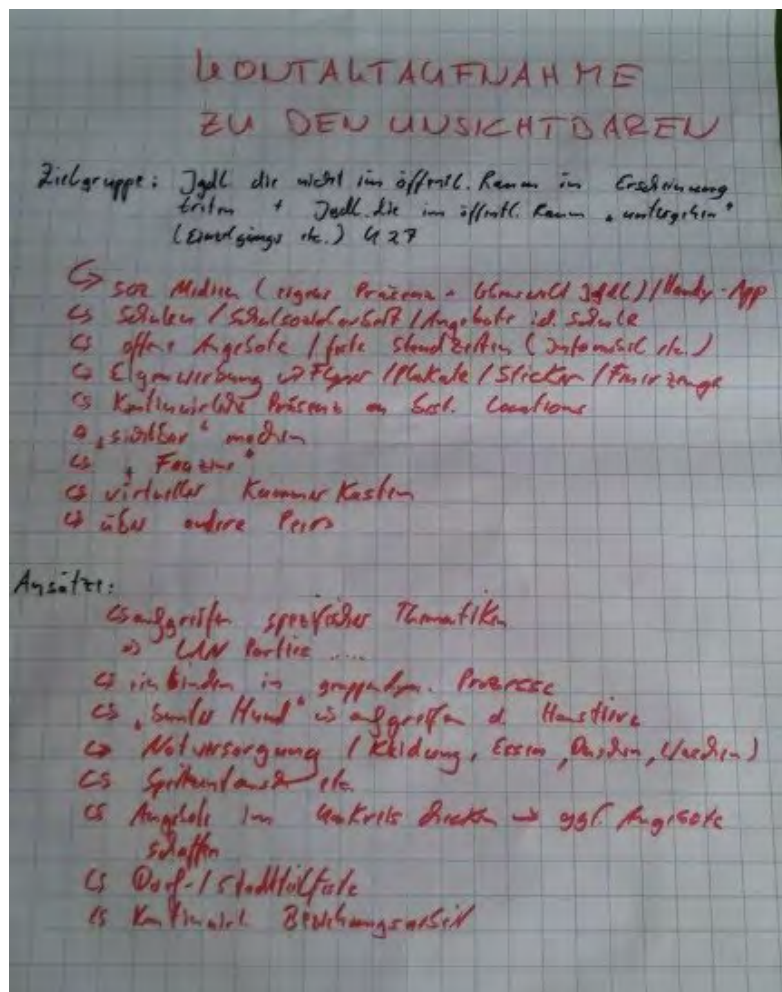 KONTAKTAUFNAHME
ZU DEN UNSICHTBAREN
Zielgruppe: Jgdl. die nicht im öffentl. Raum in Erscheinung
treten + Jgdl. die im öffentl. Raum "untergehen"
etc.) U27
↳ soz Medien (eigene Präsenz + Jgdl.) / Handy-App
↳ Schulen / Schulsozialarbeit / Angebote i.d. Schule
↳ offene Angebote / feste Standzeiten (Infomobil etc.)
↳ Eigenwerbung → Flyer / Plakate / Sticker / Feuerzeuge
↳ Kontinuierliche Präsenz an best. Locations
↳ "sichtbar" machen
↳ "Fanzine"
↳ virtueller Kummer Kasten
↳ über andere Peers
Ansätze:
↳ aufgreifen spezifischer Thematiken
⇒ LAN Partie .....
↳ einbinden in gruppendyn. Prozesse
↳ "bunter Hund" ⇒ aufgreifen d. Haustiere
↳ Notversorgung (Kleidung, Essen, Duschen, Waschen)
↳ Spritzentausch etc.
↳ Angebote im Umkreis checken → ggf. Angebote
schaffen
↳ Dorf- / Stadtteilfeste
↳ Kontinuierl. Beziehungsarbeit